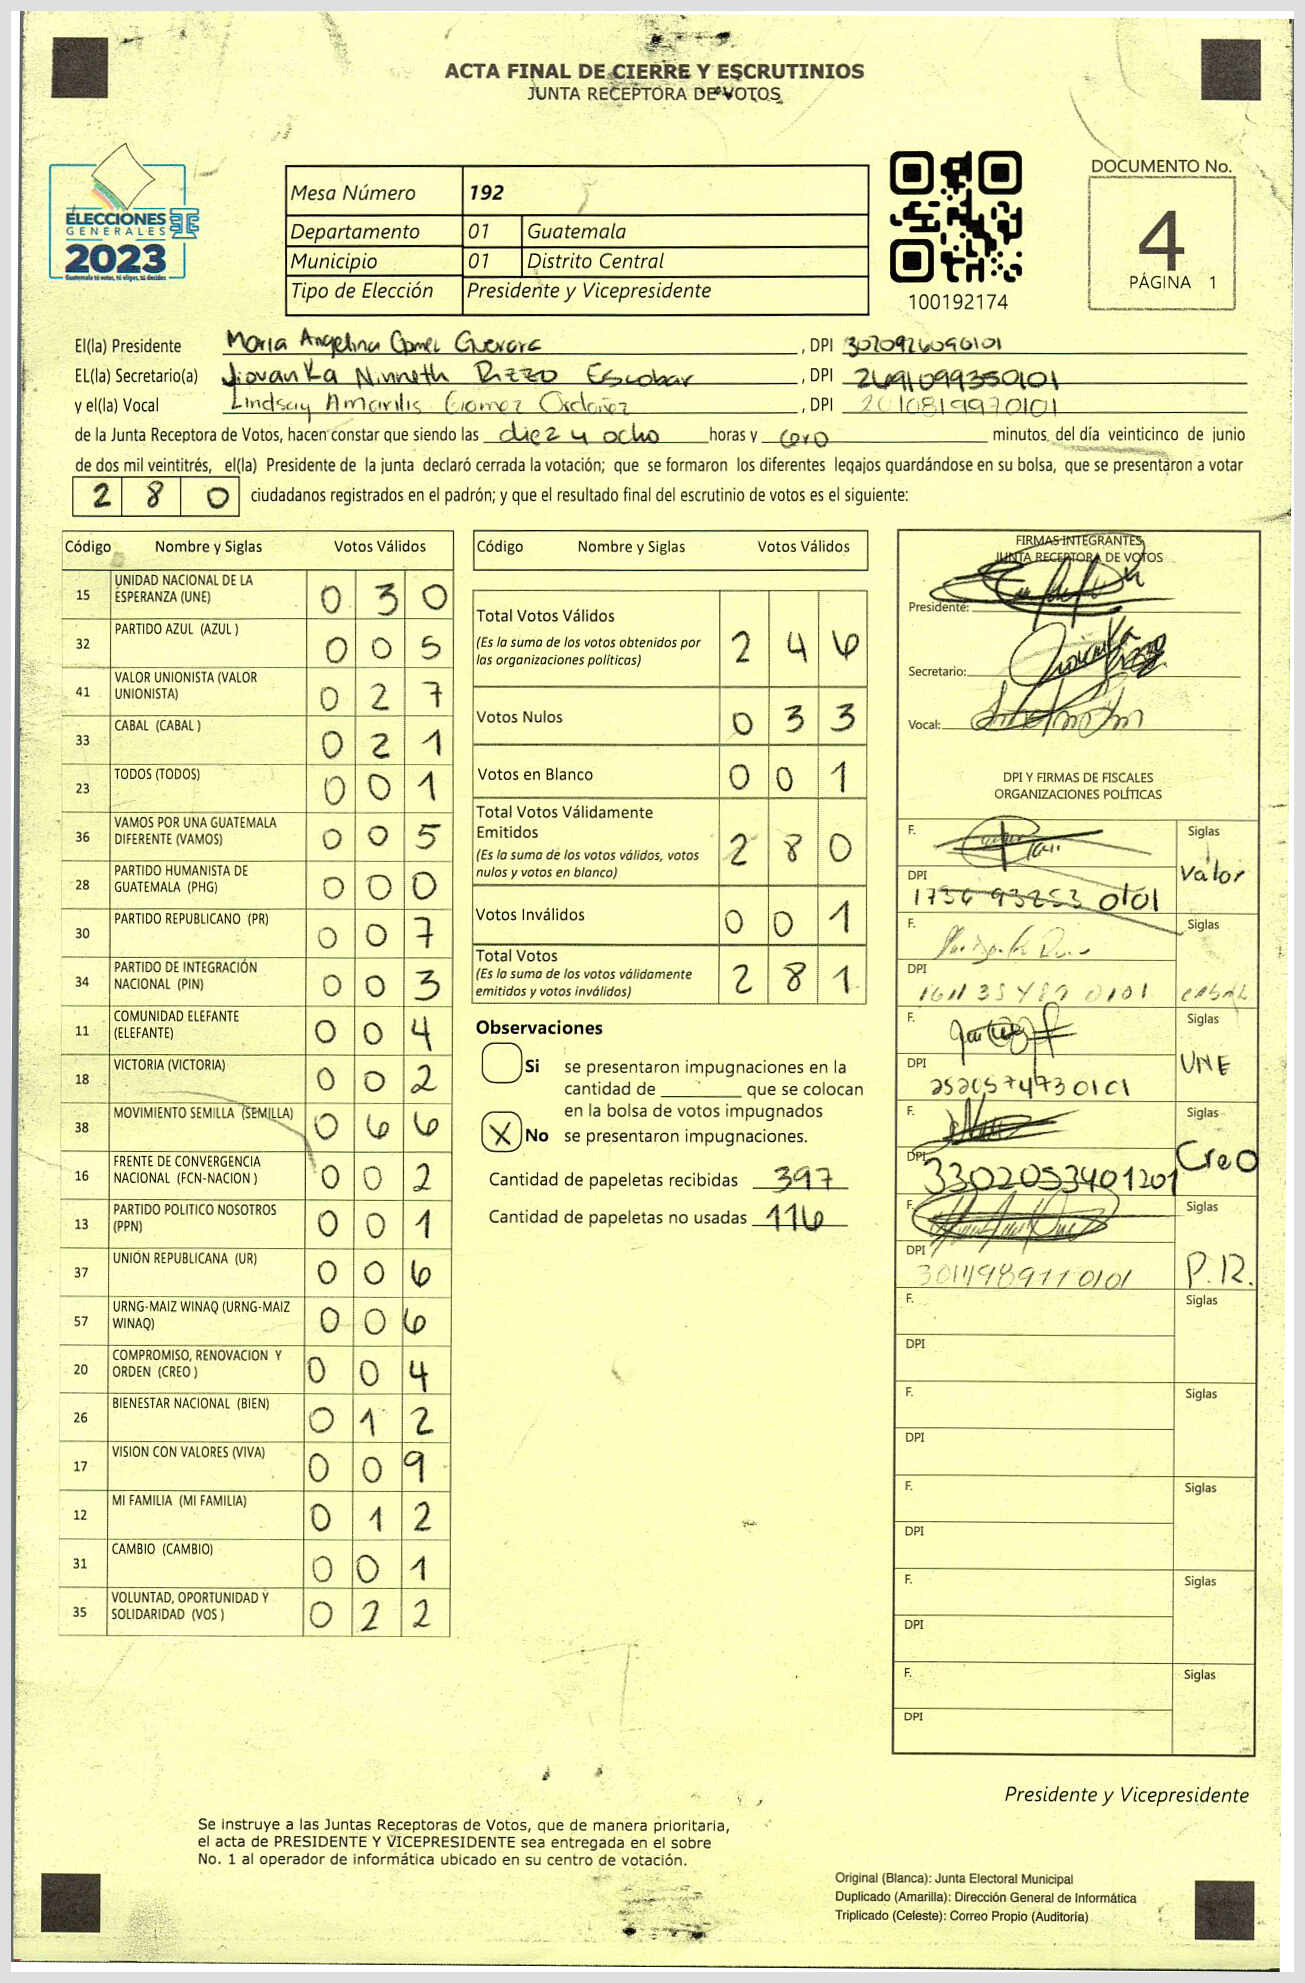 ACTA FINAL DE CIERRE Y ESCRUTINIOS
JUNTA RECEPTORA DE VOTOS
ELECCIONES
GENERALES
2023
Guatemala tú votas, tú eliges, tú decides
Mesa Número 192
Departamento 01 Guatemala
Municipio 01 Distrito Central
Tipo de Elección Presidente y Vicepresidente
100192174
DOCUMENTO No.
4
PÁGINA 1
El(la) Presidente Maria Angelina Gomez Guevara, DPI 3020926090101
EL(la) Secretario(a) Jiovanka Ninneth Rizzo Escobar, DPI 2691099350101
y el(la) Vocal Lindsay Amarilis Gomez Ordoñez, DPI 2010819970101
de la Junta Receptora de Votos, hacen constar que siendo las diez y ocho horas y cero minutos del día veinticinco de junio
de dos mil veintitrés, el(la) Presidente de la junta declaró cerrada la votación; que se formaron los diferentes legajos guardándose en su bolsa, que se presentaron a votar
2 8 0 ciudadanos registrados en el padrón; y que el resultado final del escrutinio de votos es el siguiente:
Código Nombre y Siglas Votos Válidos
15 UNIDAD NACIONAL DE LA ESPERANZA (UNE) 0 3 0
32 PARTIDO AZUL (AZUL ) 0 0 5
41 VALOR UNIONISTA (VALOR UNIONISTA) 0 2 7
33 CABAL (CABAL ) 0 2 1
23 TODOS (TODOS) 0 0 1
36 VAMOS POR UNA GUATEMALA DIFERENTE (VAMOS) 0 0 5
28 PARTIDO HUMANISTA DE GUATEMALA (PHG) 0 0 0
30 PARTIDO REPUBLICANO (PR) 0 0 7
34 PARTIDO DE INTEGRACIÓN NACIONAL (PIN) 0 0 3
11 COMUNIDAD ELEFANTE (ELEFANTE) 0 0 4
18 VICTORIA (VICTORIA) 0 0 2
38 MOVIMIENTO SEMILLA (SEMILLA) 0 6 6
16 FRENTE DE CONVERGENCIA NACIONAL (FCN-NACION ) 0 0 2
13 PARTIDO POLITICO NOSOTROS (PPN) 0 0 1
37 UNION REPUBLICANA (UR) 0 0 6
57 URNG-MAIZ WINAQ (URNG-MAIZ WINAQ) 0 0 6
20 COMPROMISO, RENOVACION Y ORDEN (CREO ) 0 0 4
26 BIENESTAR NACIONAL (BIEN) 0 1 2
17 VISION CON VALORES (VIVA) 0 0 9
12 MI FAMILIA (MI FAMILIA) 0 1 2
31 CAMBIO (CAMBIO) 0 0 1
35 VOLUNTAD, OPORTUNIDAD Y SOLIDARIDAD (VOS ) 0 2 2
Código Nombre y Siglas Votos Válidos
Total Votos Válidos 2 4 6
(Es la suma de los votos obtenidos por
las organizaciones políticas)
Votos Nulos 0 3 3
Votos en Blanco 0 0 1
Total Votos Válidamente
Emitidos 2 8 0
(Es la suma de los votos válidos, votos
nulos y votos en blanco)
Votos Inválidos 0 0 1
Total Votos 2 8 1
(Es la suma de los votos válidamente
emitidos y votos inválidos)
Observaciones
Si se presentaron impugnaciones en la
cantidad de ________ que se colocan
en la bolsa de votos impugnados
X No se presentaron impugnaciones.
Cantidad de papeletas recibidas 397
Cantidad de papeletas no usadas 116
FIRMAS INTEGRANTES
JUNTA RECEPTORA DE VOTOS
Presidente:
Secretario:
Vocal:
DPI Y FIRMAS DE FISCALES
ORGANIZACIONES POLÍTICAS
F. Siglas
DPI Valor
F. Siglas
DPI cabal
F. Siglas
DPI UNE
F. Siglas
DPI 3302053401201 Creo
F. Siglas
DPI P.R.
F. Siglas
DPI
F. Siglas
DPI
F. Siglas
DPI
F. Siglas
DPI
F. Siglas
DPI
Presidente y Vicepresidente
Se instruye a las Juntas Receptoras de Votos, que de manera prioritaria,
el acta de PRESIDENTE Y VICEPRESIDENTE sea entregada en el sobre
No. 1 al operador de informática ubicado en su centro de votación.
Original (Blanca): Junta Electoral Municipal
Duplicado (Amarilla): Dirección General de Informática
Triplicado (Celeste): Correo Propio (Auditoría)